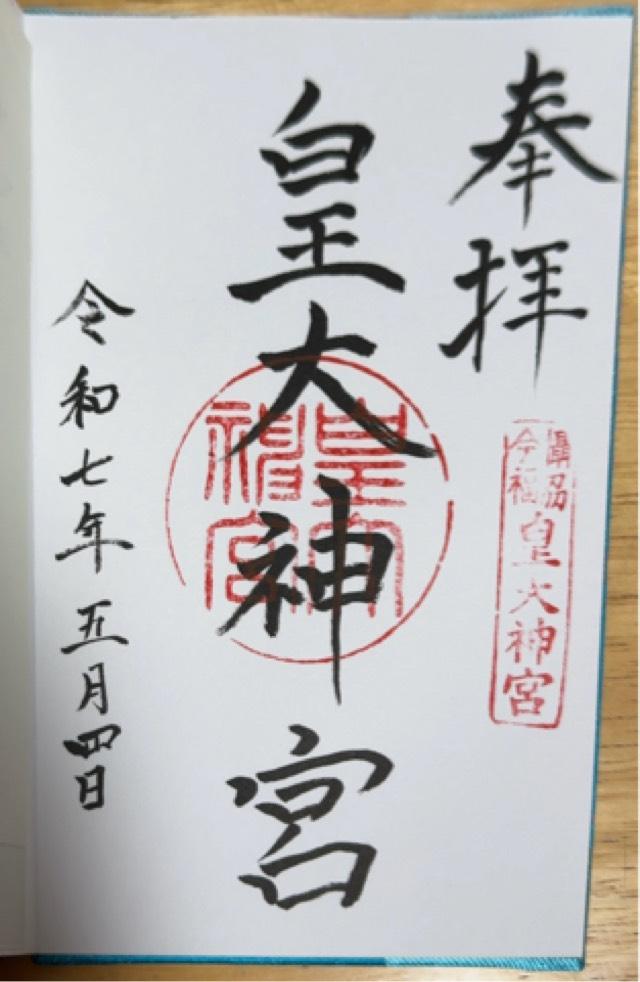 奉拝
今福
皇大神宮
皇大神宮
令和七年五月四日